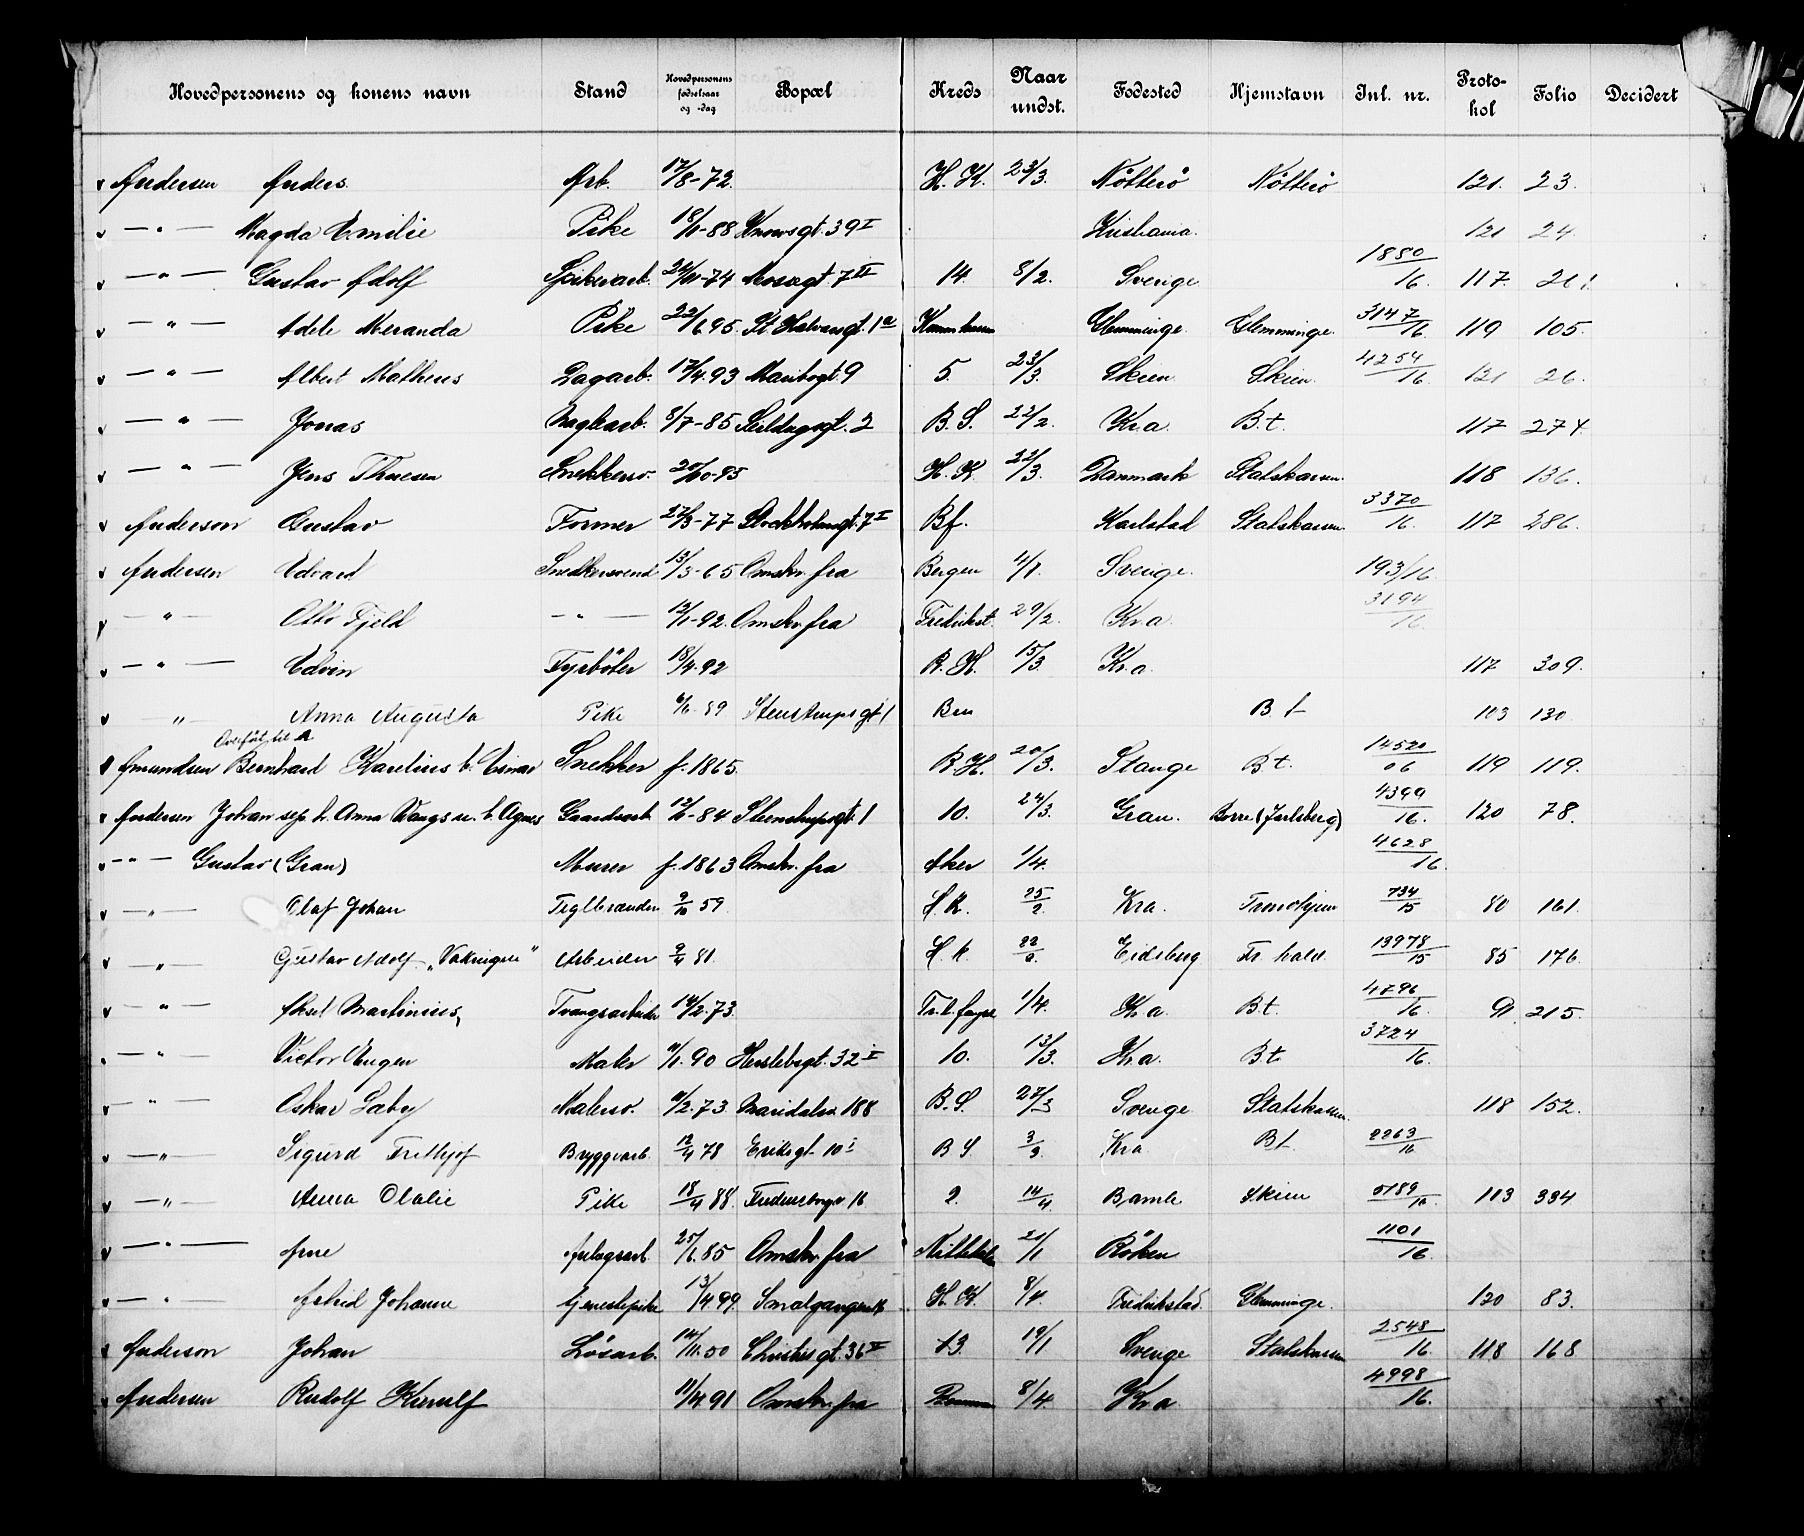 Hovedpersonens og konens navn Stand Hovedpersonens fødselsaar og -dag Bopæl Kreds Naar undst. Fødested Hjemstavn Inl. nr. Protokol Folio Decidert
Andersen Anders. Arb. 17/8-72. H. K. 23/3. Nötterö Nötterö 121. 23.
— " — Magda Emilie Pike 18/1-88 39 I Kristiania. 121 24.
— " — Gustav Adolf 24/11-74 Mossegt. 7 II 14. 8/2. Sverige. 1880/16. 117. 261.
— " — Adele Meranda Pike 22/6 95. St Halvardsgt. 1 a Glemminge. Glemminge. 3147/16 119 105.
— " — Albert Matheus Dagarb. 17/4. 93 Maribogt. 9 5. 23/3. Skien. Skien. 4254/16. 121 26.
— " — Jonas 8/7-85 Seildugsgt. 2 B. S. 22/2. Kr.a. B.t. 117 274.
— " — Jens Thuesen Snekkersv. 20/10-95 H. K. 22/3. Danmark Statskassen. 118 136.
Anderson Gustav Former 27/3-77 Stockholmsgt. 7 I Bf. Karlstad Statskassen. 3370/16. 117 286.
Andersen Edvard Snedkersvend 13/3-65 Omskr. fra Bergen 4/1. Sverige. 193/16
— " — Otto Fjeld — " — 13/1-92. Omskr. fra Fredrikst. 29/2. Kr.a. 3194/16.
— " — Edvin Fyrböter 18/4. 92 R. H. 15/3. Kr.a. 117 309.
" — Anna Augusta Pike 6/6 89 Stenstrupsgt 1 B t 103 130
Overført til A
Amundsen Bernhard Karelius b. Einar Snekker f. 1865. R. H. 20/3. Stange B.t. 14520/06 119 119.
Andersen Johan sep. h. Anna b. Agnes Gaardsarb. 12/6-84 Stenstrupsgt. 1 10. 24/3. Gran. Borre (Jarlsberg) 4399/16. 120 78.
— " — Gustav (Gran) Murer f. 1863 Omskr. fra Aker 1/4. 4628/16.
— " — Olaf Johan Teglbrænder 9/10 59. H. K. 25/2. Kra. Trondhjem 734/15 80 161.
— " — Gustav Adolf „Vakningen" Arbeider 9/4 81. H. K. Eidsberg Fr. hald. 13978/15 85 176.
— " — Aksel Martinius, Tvangsarbeider 14/2. 73. 1/4. Kr.a. B.t. 4796/16. 91. 215.
— " — Victor Eugen Maler 11/1. 90 Herslebsgt. 32 I 10. 13/3. Kr.a. B.t. 3724/16.
— " — Oskar Malersv. 11/2. 73. Maridalsv. 188 B.S. 27/3 Sverige Statskassen. 118 152.
— " — Sigurd Frithjof Bryggearb. 12/4 78 Eriksgt. 10 I B S 3/3. Kra B t 2263/16
— " — Anna Olalie Pike 18/4 88. Fredensborgv 16 2. 14/4. Bamle Skien 5189/16. 113 334.
— " — Arne Anlegsarb. 25/6. 85 Omskr. fra Nittedalen 21/1 Röken 1101/16.
— " — Astrid Johanne tjenestepike 13/4 99. Smalgangen 16 H. K. 8/4. Fredrikstad. Glemminge. 120 83.
Anderson Johan Lösarb. 14/11. 50 Christiesgt. 36 II 13. 19/1 Sverige Statskassen 2548/16. 118 168
Andersen Rudolf Kierulf 11/4. 91 Omskr. fra 8/4. Kr.a. 4998/16.